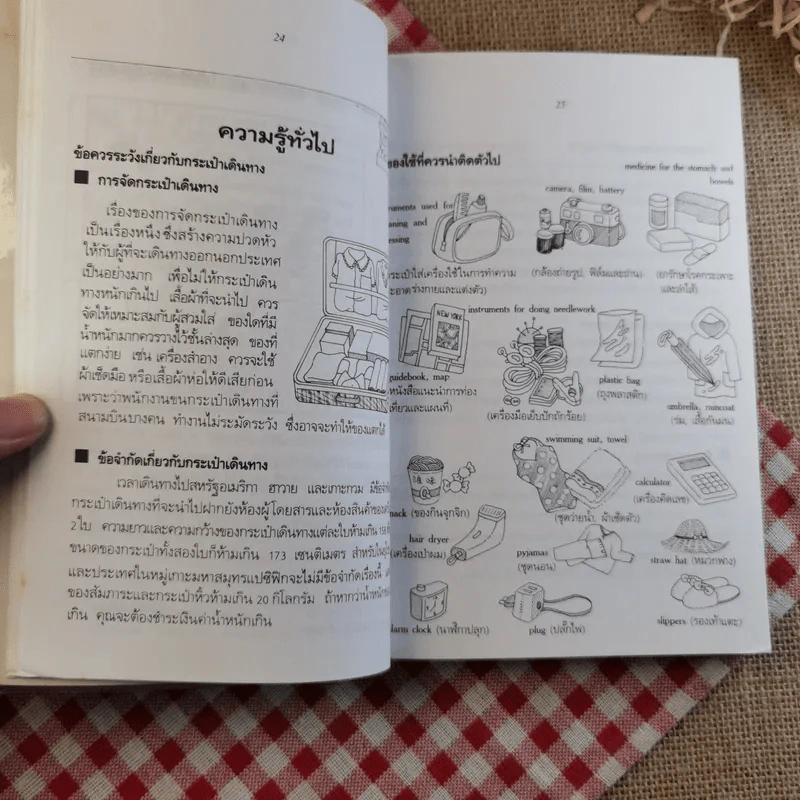 24
ความรู้ทั่วไป
ข้อควรระวังเกี่ยวกับกระเป๋าเดินทาง
การจัดกระเป๋าเดินทาง
เรื่องของการจัดกระเป๋าเดินทาง
เป็นเรื่องหนึ่ง ซึ่งสร้างความปวดหัว
ให้กับผู้ที่จะเดินทางออกนอกประเทศ
เป็นอย่างมาก เพื่อไม่ให้กระเป๋าเดิน
ทางหนักเกินไป เสื้อผ้าที่จะนำไป ควร
จัดให้เหมาะสมกับผู้สวมใส่ ของใดที่มี
น้ำหนักมากควรวางไว้ชั้นล่างสุด ของที่
แตกง่าย เช่น เครื่องสำอาง ควรจะใช้
ผ้าเช็ดมือ หรือเสื้อผ้าห่อให้ดีเสียก่อน
เพราะว่าพนักงานขนกระเป๋าเดินทางที่
สนามบินบางคน ทำงานไม่ระมัดระวัง ซึ่งอาจจะทำให้ของแตกได้
ข้อจำกัดเกี่ยวกับกระเป๋าเดินทาง
เวลาเดินทางไปสหรัฐอเมริกา ฮาวาย และเกาะกวม มีข้อจำ
กระเป๋าเดินทางที่จะนำไปฝากยังห้องผู้โดยสารและห้องสินค้าของ
2 ใบ ความยาวและความกว้างของกระเป๋าเดินทางแต่ละใบห้ามเกิน
ขนาดของกระเป๋าทั้งสองใบก็ห้ามเกิน 173 เซนติเมตร สำหรับใน
และประเทศในหมู่เกาะมหาสมุทรแปซิฟิกจะไม่มีข้อจำกัดเรื่องนี้
ของสัมภาระและกระเป๋าหิ้วห้ามเกิน 20 กิโลกรัม ถ้าหากว่าน้ำหนัก
เกิน คุณจะต้องชำระเงินค่าน้ำหนักเกิน
25
ของใช้ที่ควรนำติดตัวไป
ruments used for
aning and
essing
camera, film, battery
medicine for the stomach and
bowels
ระเป๋าใส่เครื่องใช้ในการทำความ
อาดร่างกายและแต่งตัว)
(กล้องถ่ายรูป, ฟิล์มและถ่าน)
(ยารักษาโรคกระเพาะ
และลำไส้)
instruments for doing needlework
NEW YORK
guidebook, map
หนังสือแนะนำการท่อง
เที่ยวและแผนที่)
(เครื่องมือเย็บปักถักร้อย)
plastic bag
(ถุงพลาสติก)
umbrella, raincoat
(ร่ม, เสื้อกันฝน)
swimming suit, towel
(ชุดว่ายน้ำ, ผ้าเช็ดตัว)
calculator
(เครื่องคิดเลข)
nack (ของกินจุกจิก)
hair dryer
(เครื่องเป่าผม)
pyjamas
(ชุดนอน)
straw hat (หมวกฟาง)
larm clock (นาฬิกาปลุก)
plug (ปลั๊กไฟ)
slippers (รองเท้าแตะ)